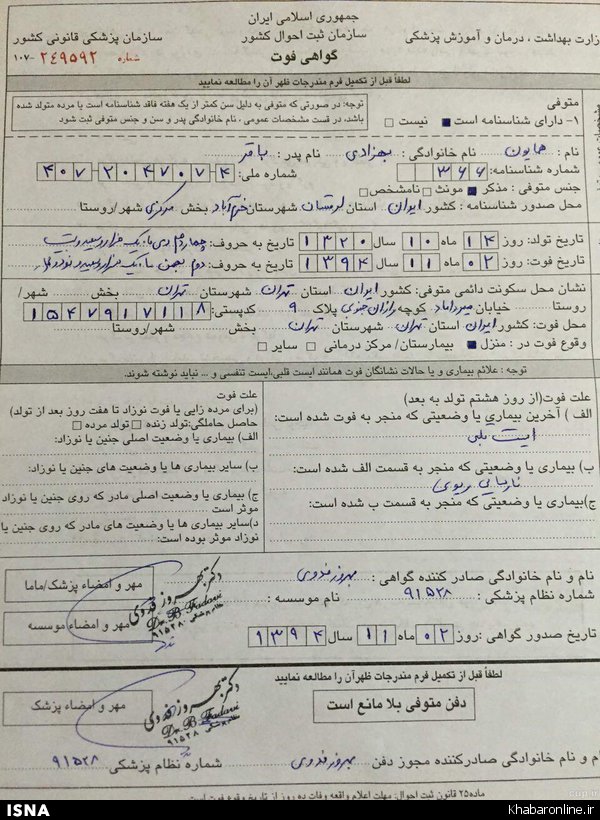 جمهوری اسلامی ایران
وزارت بهداشت ، درمان و آموزش پزشکی
سازمان ثبت احوال کشور
سازمان پزشکی قانونی کشور
گواهی فوت
شماره ۱۰۷-۲۴۹۵۹۲
لطفاً قبل از تکمیل فرم مندرجات ظهر آن را مطالعه نمایید
متوفی
۱- دارای شناسنامه است ■ نیست □
توجه: در صورتی که متوفی به دلیل سن کمتر از یک هفته فاقد شناسنامه است یا مرده متولد شده
باشد، در قسمت مشخصات عمومی ، نام خانوادگی پدر و سن و جنس متوفی ثبت شود
نام : همایون نام خانوادگی : بهزادی نام پدر : باقر
شماره شناسنامه: ۳۶۶ شماره ملی:
جنس متوفی : مذکر ■ مونث □ نامشخص □
محل صدور شناسنامه : کشور ایران استان لرستان شهرستان خرم‌آباد بخش مرکزی شهر/روستا
تاریخ تولد: روز ۱۴ ماه ۱۰ سال ۱۳۲۰ تاریخ به حروف: چهاردهم دی ماه یکهزار و سیصد و بیست
تاریخ فوت: روز ۰۲ ماه ۱۱ سال ۱۳۹۴ تاریخ به حروف: دوم بهمن ماه یکهزار و سیصد و نود و چهار
نشان محل سکونت دائمی متوفی: کشور ایران استان تهران شهرستان تهران بخش شهر/
روستا خیابان میرداماد کوچه رازان جنوبی پلاک ۹ کدپستی: ۱۵۴۷۹۱۷۱۱۸
محل فوت: کشور ایران استان تهران شهرستان تهران بخش شهر/روستا
وقوع فوت در : منزل ■ بیمارستان/ مرکز درمانی □ سایر □
توجه : علائم بیماری و یا حالات نشانگان فوت همانند ایست قلبی،ایست تنفسی و ... نباید نوشته شوند.
علت فوت(از روز هشتم تولد به بعد)
الف ) آخرین بیماری یا وضعیتی که منجر به فوت شده است:
ایست قلبی
ب) بیماری یا وضعیتی که منجر به قسمت الف شده است:
نارسایی ریوی
ج)بیماری یا وضعیتی که منجر به قسمت ب شده است:
علت فوت
(برای مرده زایی یا فوت نوزاد تا هفت روز بعد از تولد)
حاصل حاملگی: تولد زنده □ تولد مرده □
الف) بیماری یا وضعیت اصلی جنین یا نوزاد:
ب) سایر بیماری ها یا وضعیت های جنین یا نوزاد:
ج) بیماری یا وضعیت اصلی مادر که روی جنین یا نوزاد
موثر است
د)سایر بیماری ها یا وضعیت های مادر که روی جنین یا
نوزاد موثر بوده است:
نام و نام خانوادگی صادر کننده گواهی : بهروز فدوی
شماره نظام پزشکی : ۹۱۵۲۸ نام موسسه :
تاریخ صدور گواهی :روز ۰۲ ماه ۱۱ سال ۱۳۹۴
مهر و امضاء پزشک/ماما
مهر و امضاء موسسه
دکتر بهروز فدوی
Dr. B. Fadavi
نظام پزشکی: ۹۱۵۲۸
لطفاً قبل از تکمیل فرم مندرجات ظهرآن را مطالعه نمایید
دفن متوفی بلا مانع است
مهر و امضاء پزشک
دکتر بهروز فدوی
Dr. B. Fadavi
نظام پزشکی ۹۱۵۲۸
نام و نام خانوادگی صادرکننده مجوز دفن بهروز فدوی شماره نظام پزشکی ۹۱۵۲۸
ماده۲۵ قانون ثبت احوال: مهلت اعلام واقعه وفات ده روز از تاریخ وقوع فوت است
ISNA
Khabaronline.ir